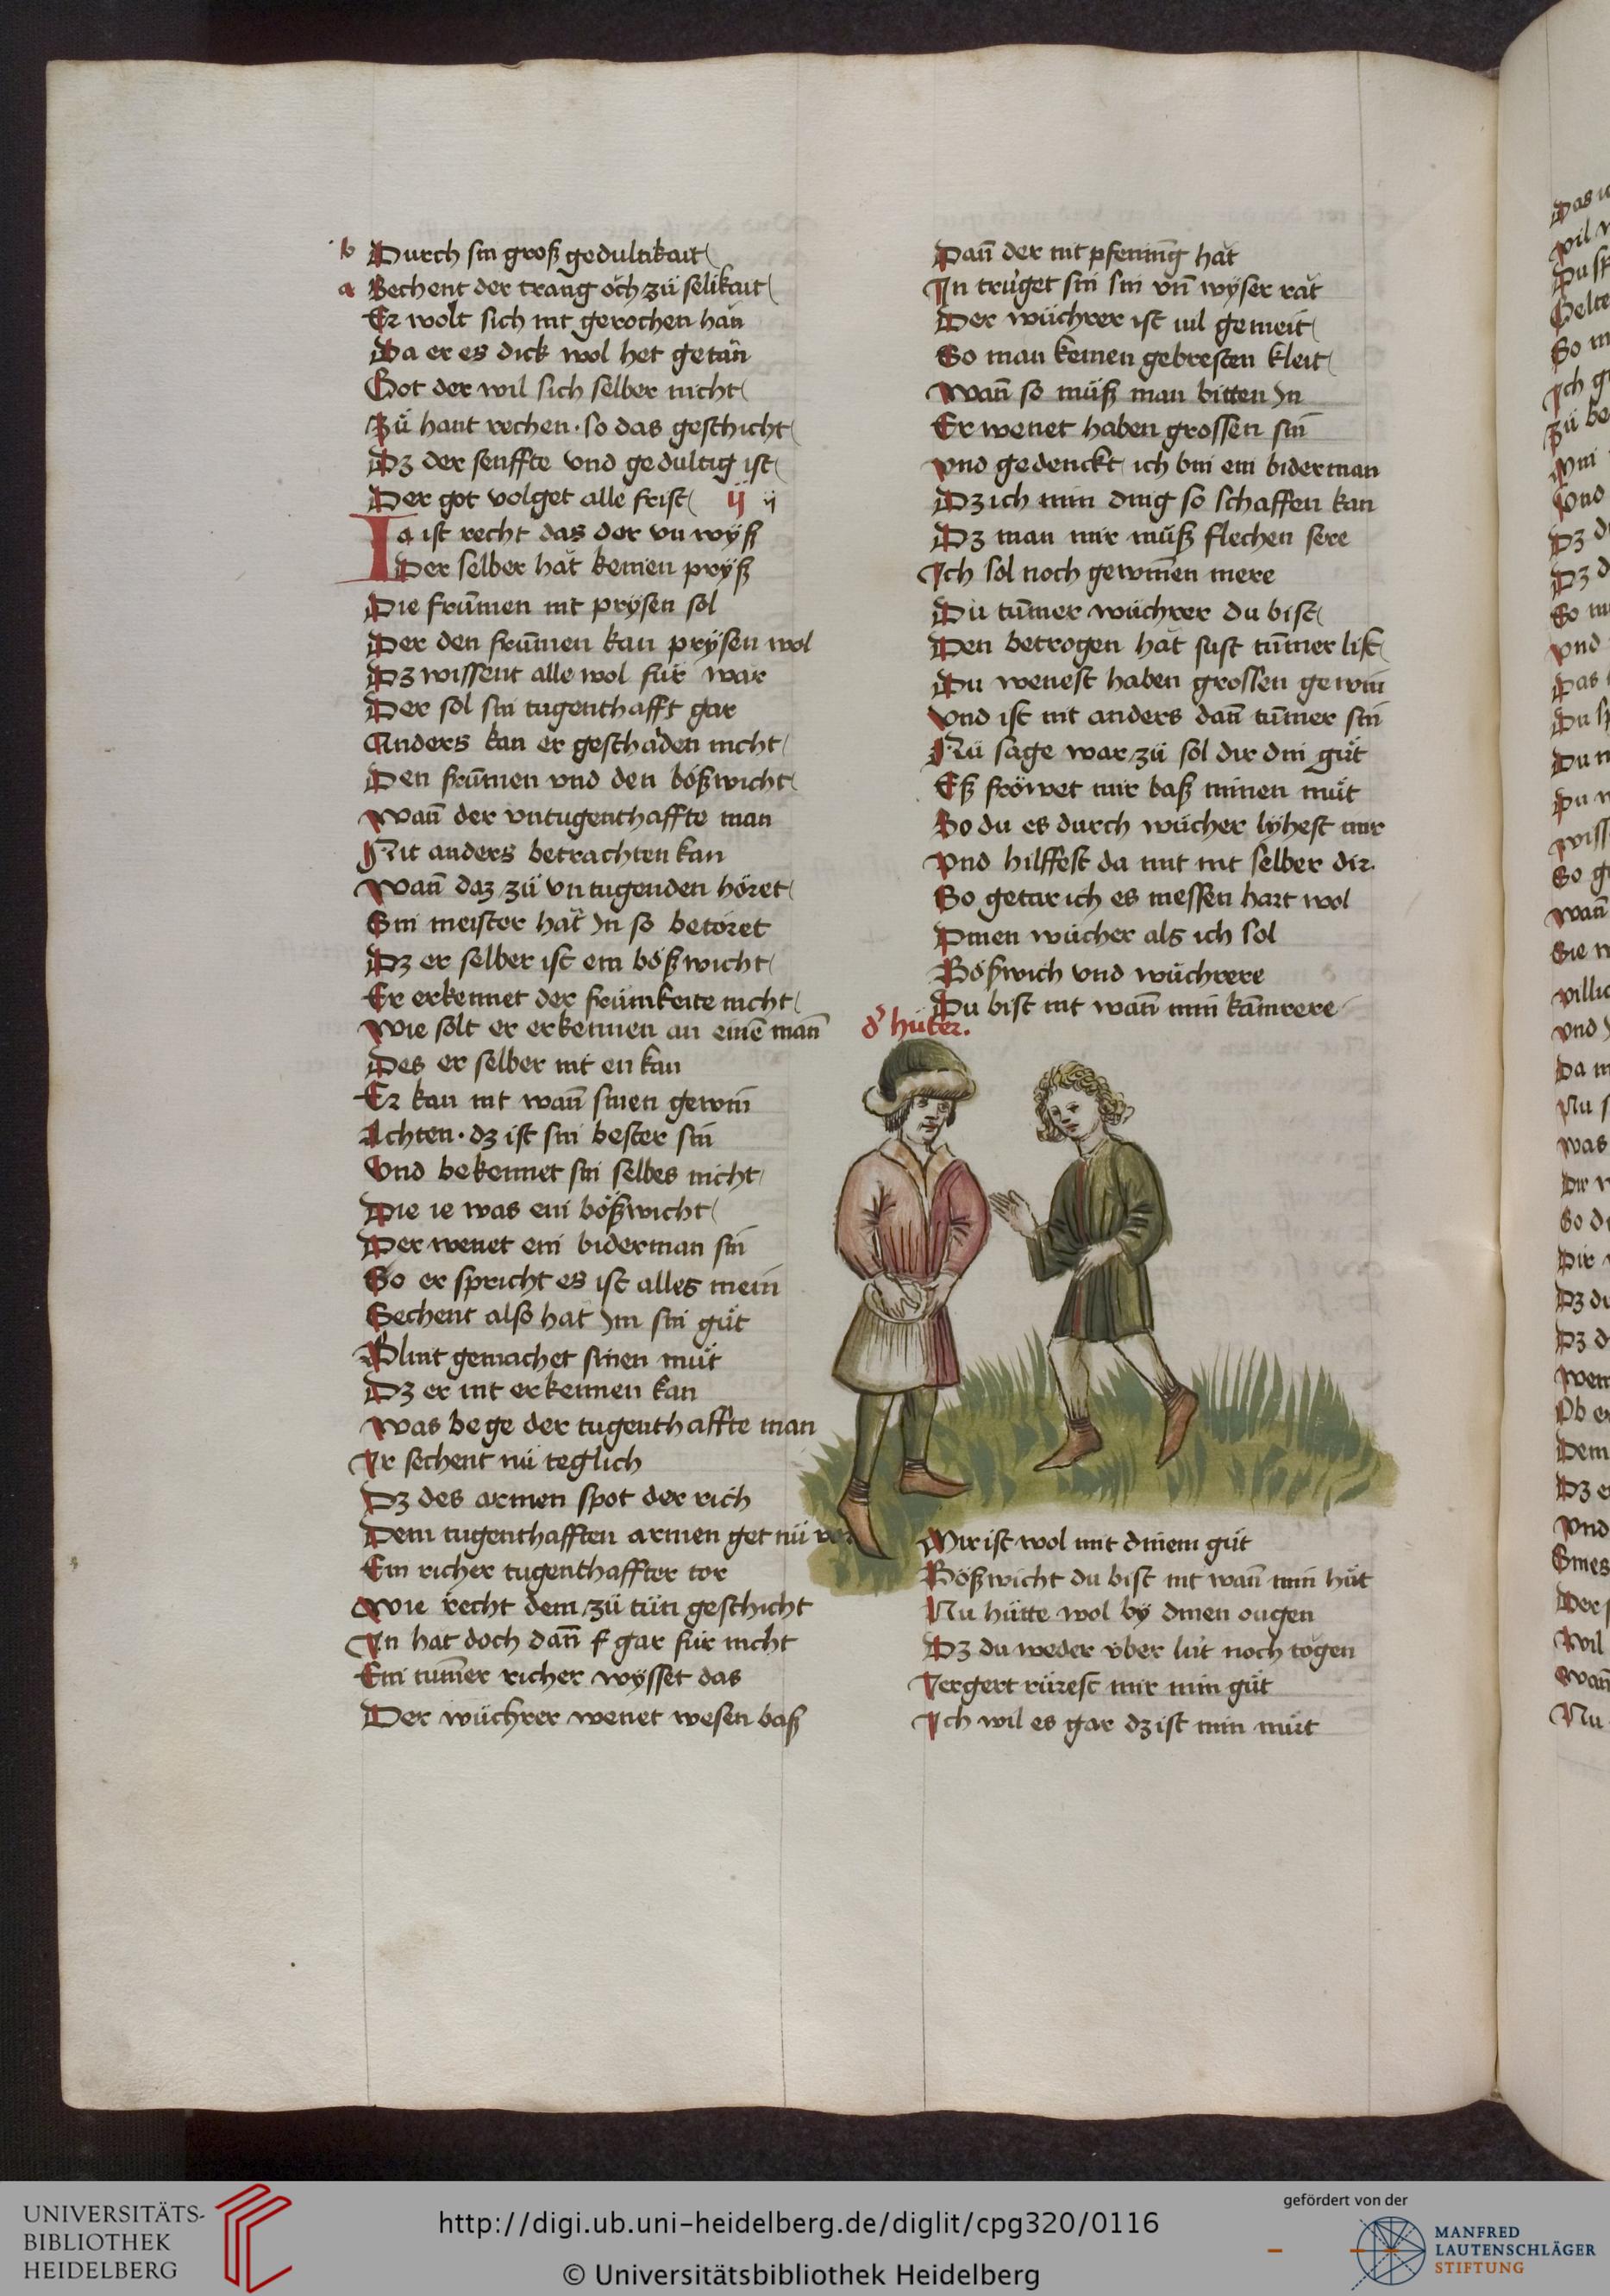 b Durch sin groß gedultikait
a Sechent der trang öch zü selikait
Er wolt sich nit gerochen hän
Da er es dick wol het getän
Got der wil sich selber nicht
Zü hant rechen · so das geschicht
Dz der senffte vnd gedultig ist
Der got volget alle frist ij ij
Ia ist recht das der vn wyß
Der selber hät keinen pryß
Die frūmen nit prysen sol
Der den frūmen kan prysen wol
Dz wissent alle wol für war
Der sol sin tugenthafft gar
Anders kan er geschaden nicht
Den frūmen vnd den bößwicht
Wañ der vntugenthaffte man
Nit anders betrachten kan
Wañ daz zü vn tugenden höret
Sin meister hät In so betöret
Dz er selber ist ein bößwicht
Er erkennet der frümkeite nicht
Wie solt er erkennen an einē mañ
Des er selber nit en kan
Er kan nit wañ sinen gewin
Achten · dz ist sin bester sin
Vnd bekennet sin selbes nicht
Die ie was ein bößwicht
Der wenet ein biderman sin
So er spricht es ist alles mein
Sechent also hät Im sin güt
Blint gemachet sinen müt
Dz er nit erkennen kan
Was bege der tugenthaffte man
Ir sechent nü teglich
Dz des armen spot der rich
Dem tugenthafften armen get nü vor
Ein richer tugenthaffter tor
Wie recht dem zü tün geschicht
In hat doch dañ f gar für nicht
Ein tum̄er richer wysset das
Der wüchrer wenet wesen baß
Dañ der nit pfening hät
In trüget sin sin vñ wyser rät
Der wüchrer ist vil gemeit
So man keinen gebresten kleit
Wañ so müß man bitten In
Er wenet haben grossen sin
Vnd gedenckt ich bin ein biderman
Dz ich min ding so schaffen kan
Dz man mir müß flechen sere
Ich sol noch gewin̄en mere
Du tūmer wüchrer du bist
Den betrogen hät sust tūmer list
Du wenest haben grossen gewin
Vnd ist nit anders dañ tūmer sin
Nü sage war zü sol dir din güt
Eß fröwet mir baß minen müt
So du es durch wücher lyhest mir
Vnd hilffest da mit nit selber dir
So getar ich es messen hart wol
Dinen wücher als ich sol
Bößwich vnd wüchrere
Du bist nit wañ min kām̄rere
d' hüter.
Mir ist wol mit dinem güt
Bößwicht du bist nit wañ min hüt
Nu hütte wol by dinen ougen
Dz du weder vber lüt noch tögen
Iergert rürest mir min güt
Ich wil es gar dz ist min müt
UNIVERSITÄTS-
BIBLIOTHEK
HEIDELBERG
http://digi.ub.uni-heidelberg.de/diglit/cpg320/0116
© Universitätsbibliothek Heidelberg
gefördert von der
MANFRED
LAUTENSCHLÄGER
STIFTUNG